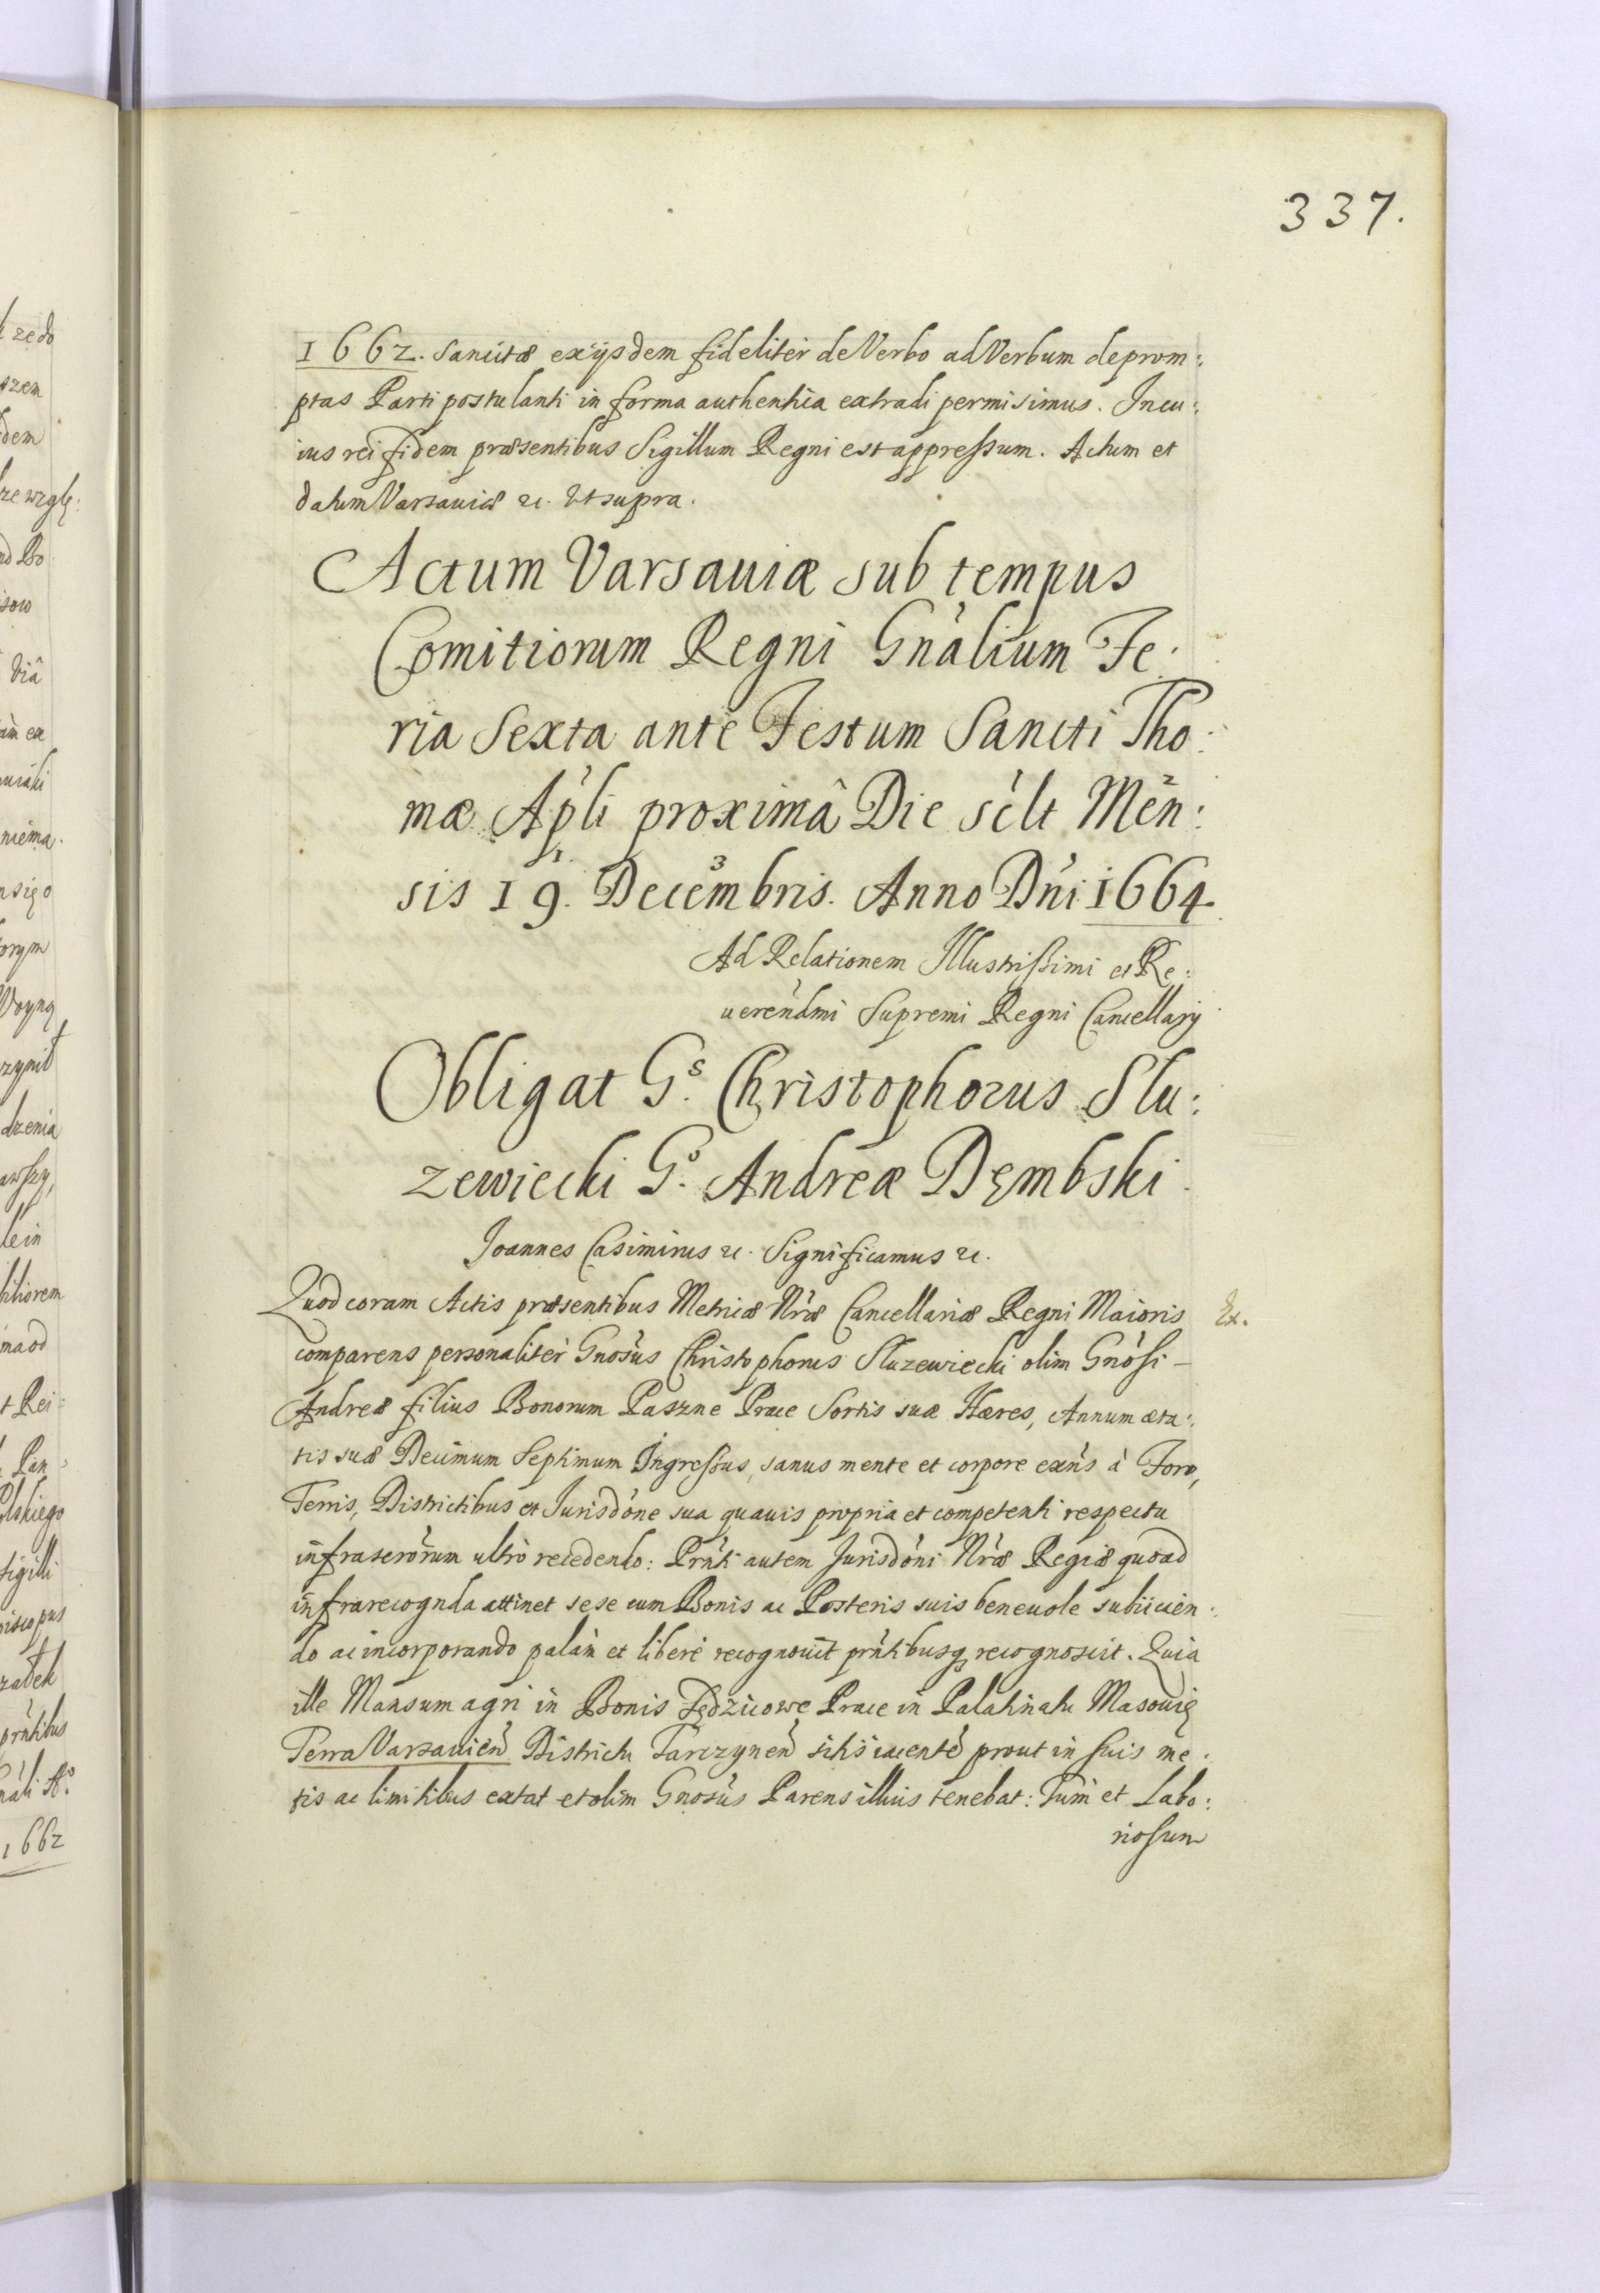 337.
1662. Sancitæ ex ijsdem fideliter de Verbo ad Verbum deprom:
ptas Parti postulanti in forma authentica extradi permisimus. In cu:
ius rei fidem præsentibus Sigillum Regni est appressum. Actum et
datum Varsaviæ &c. Ut supra.
Actum Varsauiæ sub tempus
Comitiorum Regni Gnàlium Fe:
ria Sexta ante Festum Sancti Tho:
mæ Apli proximâ Die sclt Men:
sis 19. Decembris. Anno Dni 1664.
Ad Relationem Illustrissimi et Re:
uerendmi Supremi Regni Cancellarij
Obligat Gs. Christophorus Slu:
zewiecki Go. Andreæ Dęmbski.
Joannes Casimirus &c. Significamus &c.
Quod coram Actis præsentibus Metricæ Nræ Cancellariæ Regni Maioris
Ex.
comparens personaliter Gnosus Christophorus Sluzewiecki olim Gnosi
Andreæ filius Bonorum Paszne Prace Sortis suæ Hæres, Annum æta:
tis suæ Decimum Septimum Ingressus, sanus mente et corpore exns à Foro,
Terris, Districtibus et Jurisdone sua quauis propria et competenti respectu
infrascrorum ultrò recedendo: Prnti autem Jurisdoni Nræ Regiæ quoad
infrarecognda attinet sese cum Bonis ac Posteris suis beneuole subiicien:
do ac incorporando palàm et liberè recognouit prntibusq recognoscit. Quia
ille Mansum agri in Bonis Jędzicowe Prace in Palatinatu Masouię
Terra Varsauien Districtu Tarczynen sitis iacente prout in suis me:
tis ac limitibus extat et olim Gnosus Parens illius tenebat: Tum et Labo:
riosum